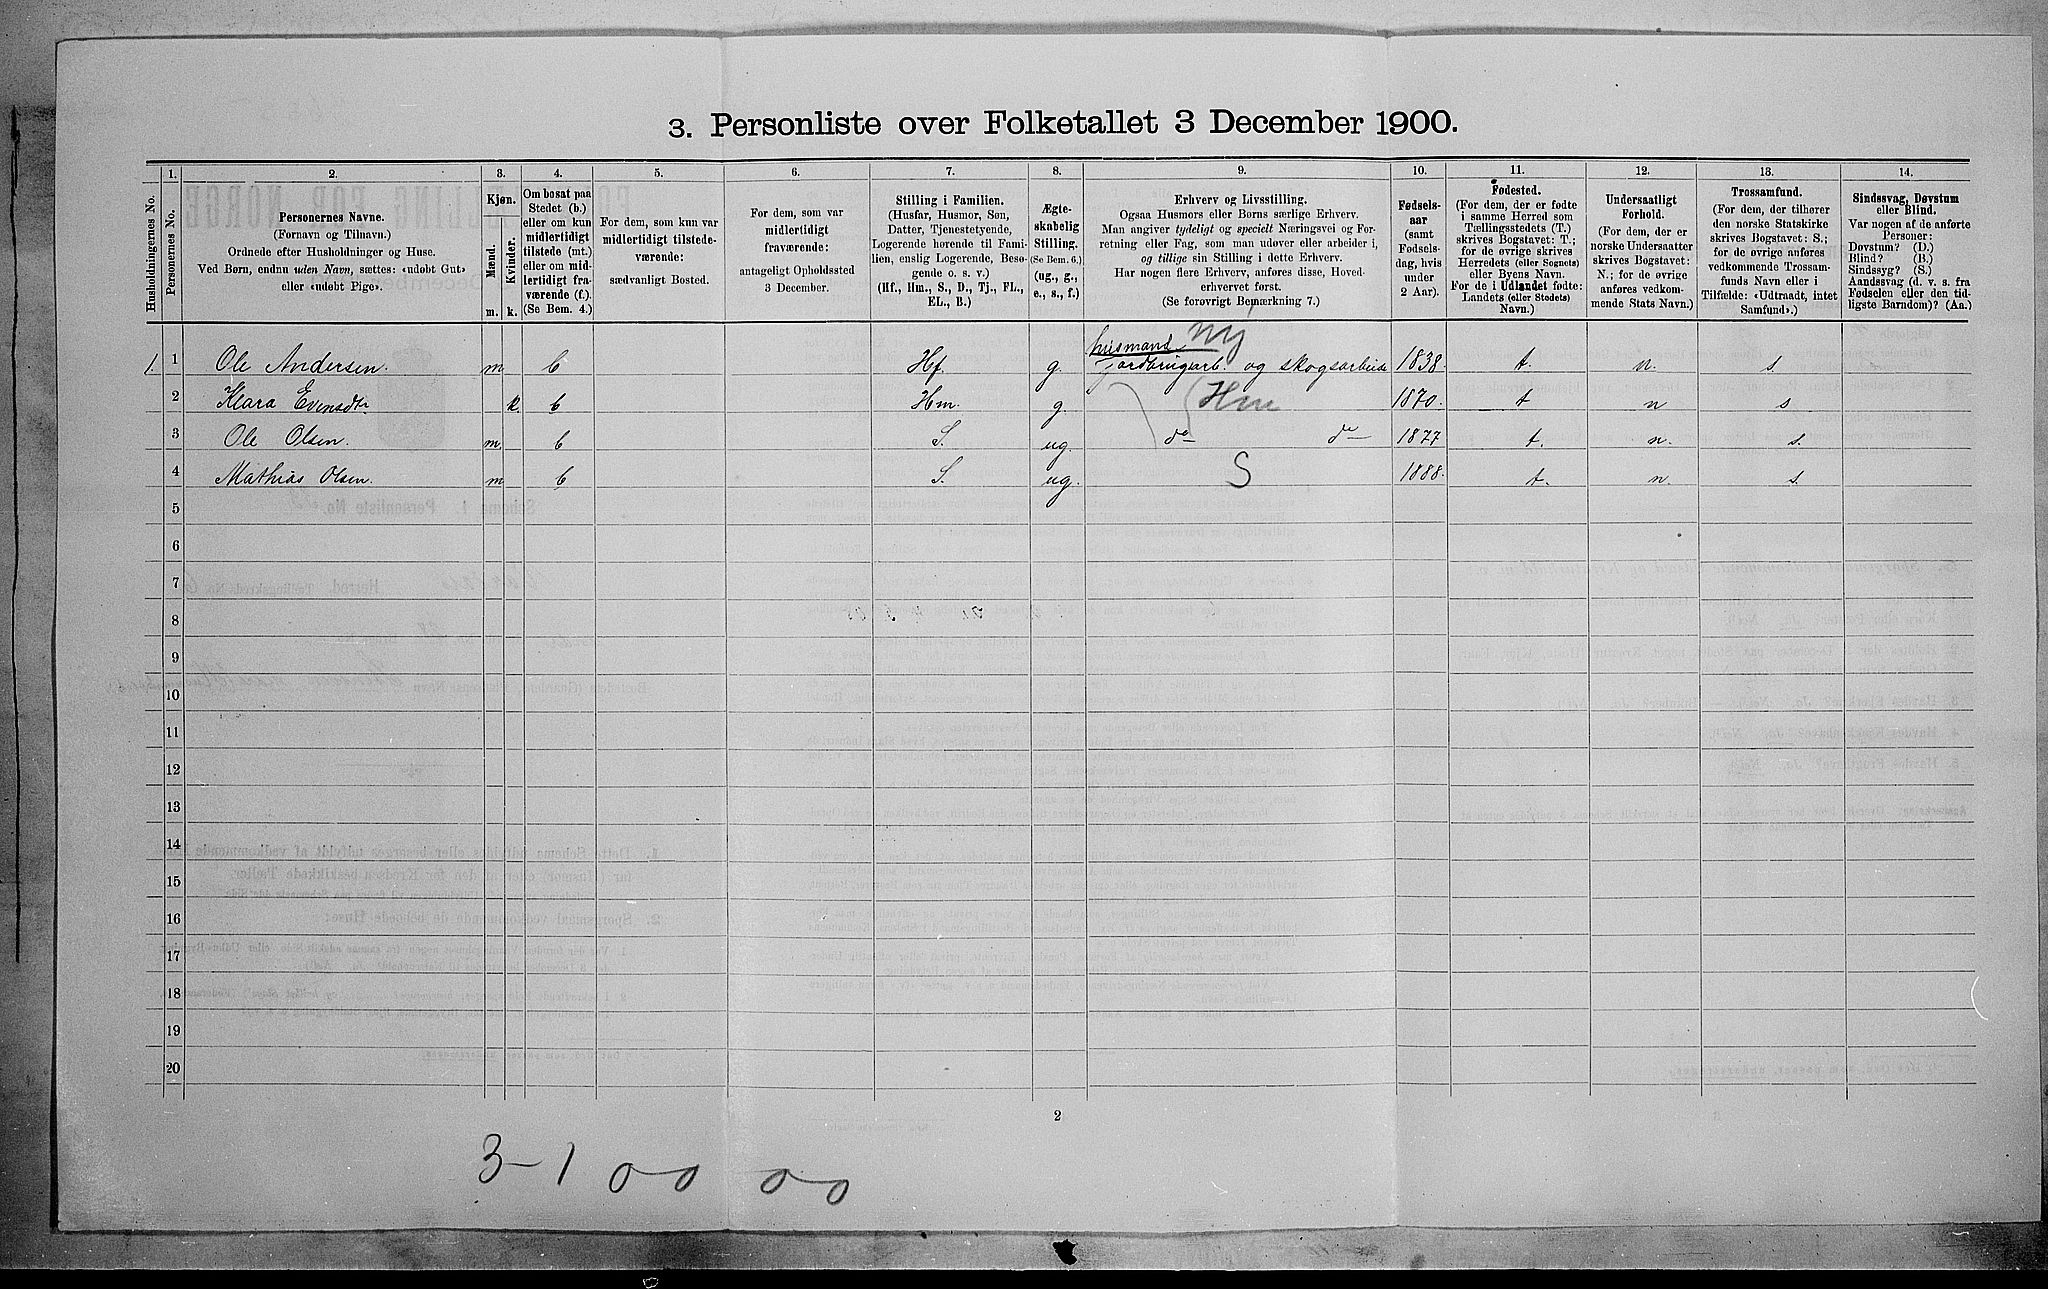 3. Personliste over Folketallet 3 December 1900.
Husholdningernes No.
1. Personernes No.
2. Personernes Navne.
(Fornavn og Tilnavn.)
Ordnede efter Husholdninger og Huse.
Ved Børn, endnu uden Navn, sættes: «udøbt Gut»
eller «udøbt Pige».
3. Kjøn.
Mænd. m.
Kvinder. k.
4. Om bosat paa
Stedet (b.)
eller om kun
midlertidigt
tilstede (mt.)
eller om mid-
lertidigt fra-
værende (f.)
(Se Bem. 4.)
5. For dem, som kun var
midlertidigt tilstede-
værende:
sædvanligt Bosted.
6. For dem, som var
midlertidigt
fraværende:
antageligt Opholdssted
3 December.
7. Stilling i Familien.
(Husfar, Husmor, Søn,
Datter, Tjenestetyende,
Logerende hørende til Fami-
lien, enslig Logerende, Besø-
gende o. s. v.)
(Hf., Hm., S., D., Tj., FL.,
EL., B.)
8. Ægte-
skabelig
Stilling.
(Se Bem. 6.)
(ug., g.,
e., s., f.)
9. Erhverv og Livsstilling.
Ogsaa Husmors eller Børns særlige Erhverv.
Man angiver tydeligt og specielt Næringsvei og For-
retning eller Fag, som man udøver eller arbeider i,
og tillige sin Stilling i dette Erhverv.
Har nogen flere Erhverv, anføres disse, Hoved-
erhvervet først.
(Se forøvrigt Bemærkning 7.)
10. Fødsels-
aar
(samt
Fødsels-
dag, hvis
under
2 Aar).
11. Fødested.
(For dem, der er fødte
i samme Herred som
Tællingsstedets (T.)
skrives Bogstavet: T.;
for de øvrige skrives
Herredets (eller Sognets)
eller Byens Navn.
For de i Udlandet fødte:
Landets (eller Stedets)
Navn.)
12. Undersaatligt
Forhold.
(For dem, der er
norske Undersaatter
skrives Bogstavet:
N.; for de øvrige
anføres vedkom-
mende Stats Navn.)
13. Trossamfund.
(For dem, der tilhører
den norske Statskirke
skrives Bogstavet: S.;
for de øvrige anføres
vedkommende Trossam-
funds Navn eller i
Tilfælde: «Udtraadt, intet
Samfund».)
14. Sindssvag, Døvstum
eller Blind.
Var nogen af de anførte
Personer:
Døvstum? (D.)
Blind? (B.)
Sindssyg? (S.)
Aandssvag (d. v. s. fra
Fødselen eller den tid-
ligste Barndom)? (Aa.)
husmand Ny
1. 1 Ole Andersen. m b Hf. g. Jordbrugarb. og skogsarbeide 1838. t. n. s.
2 Klara Evensdtr k. b Hm. g. Hm 1870. t n s
3 Ole Olsen. m b S. ug. do do 1877 t. n. s.
4 Mathias Olsen. m b S. ug. S 1888. t. n. s.
5
6
7
8
9
10
11
12
13
14
15
16
17
18
19
20
2
3-1 00 00